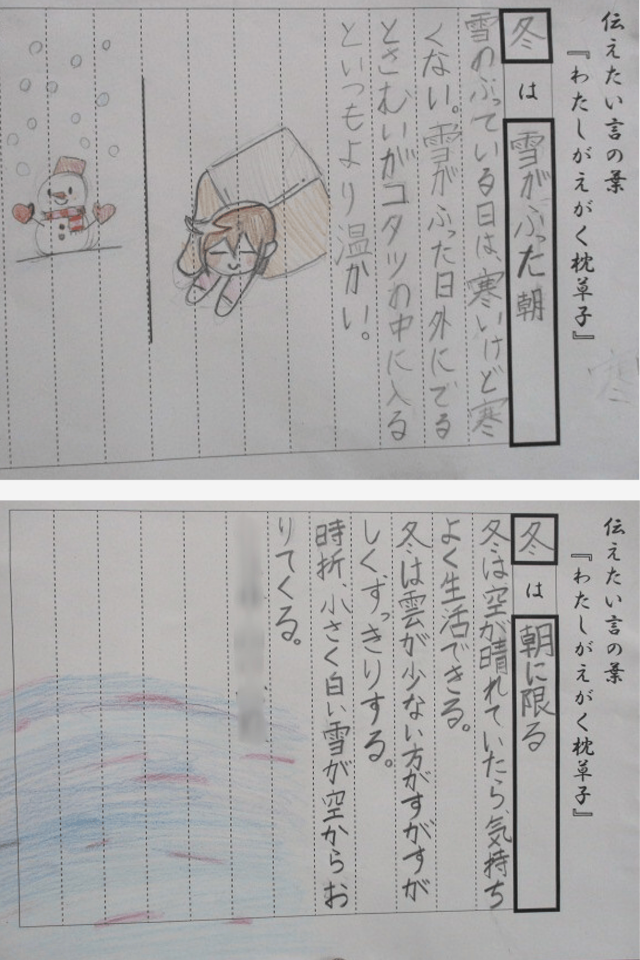 伝えたい言の葉
『わたしがえがく枕草子』
冬は雪がふった朝
雪のふっている日は、寒いけど寒
くない。雪がふった日外にでる
とさむいがコタツの中に入る
といつもより温かい。
寒
伝えたい言の葉
『わたしがえがく枕草子』
冬は朝に限る
冬は空が晴れていたら、気持ち
よく生活できる。
冬は雲が少ない方がすがすが
しくずっきりする。
時折、小さく白い雪が空からお
りてくる。